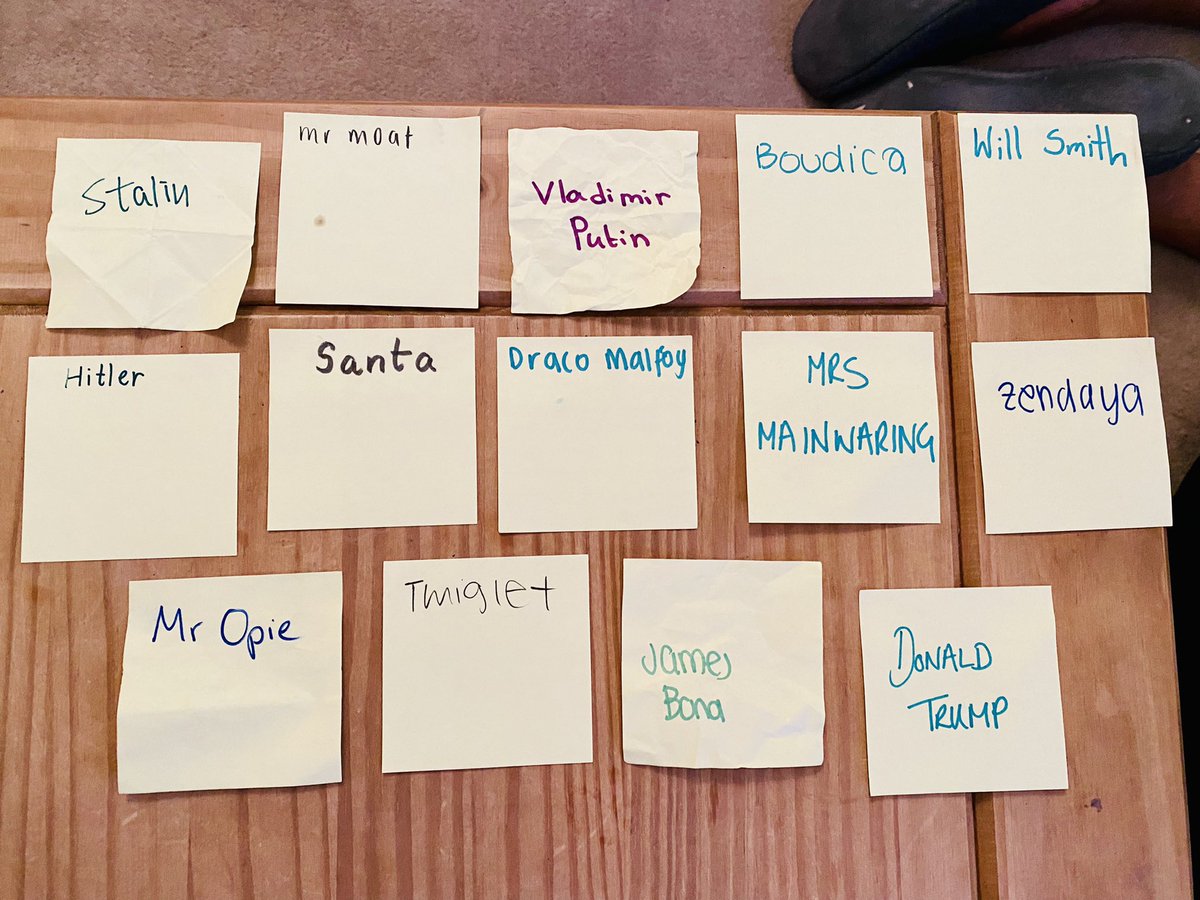 Stalin
mr moat
Vladimir
Putin
Boudica
Will Smith
Hitler
Santa
Draco Malfoy
MRS
MAINWARING
zendaya
Mr Opie
Twiglet
James
Bond
DONALD
TRUMP